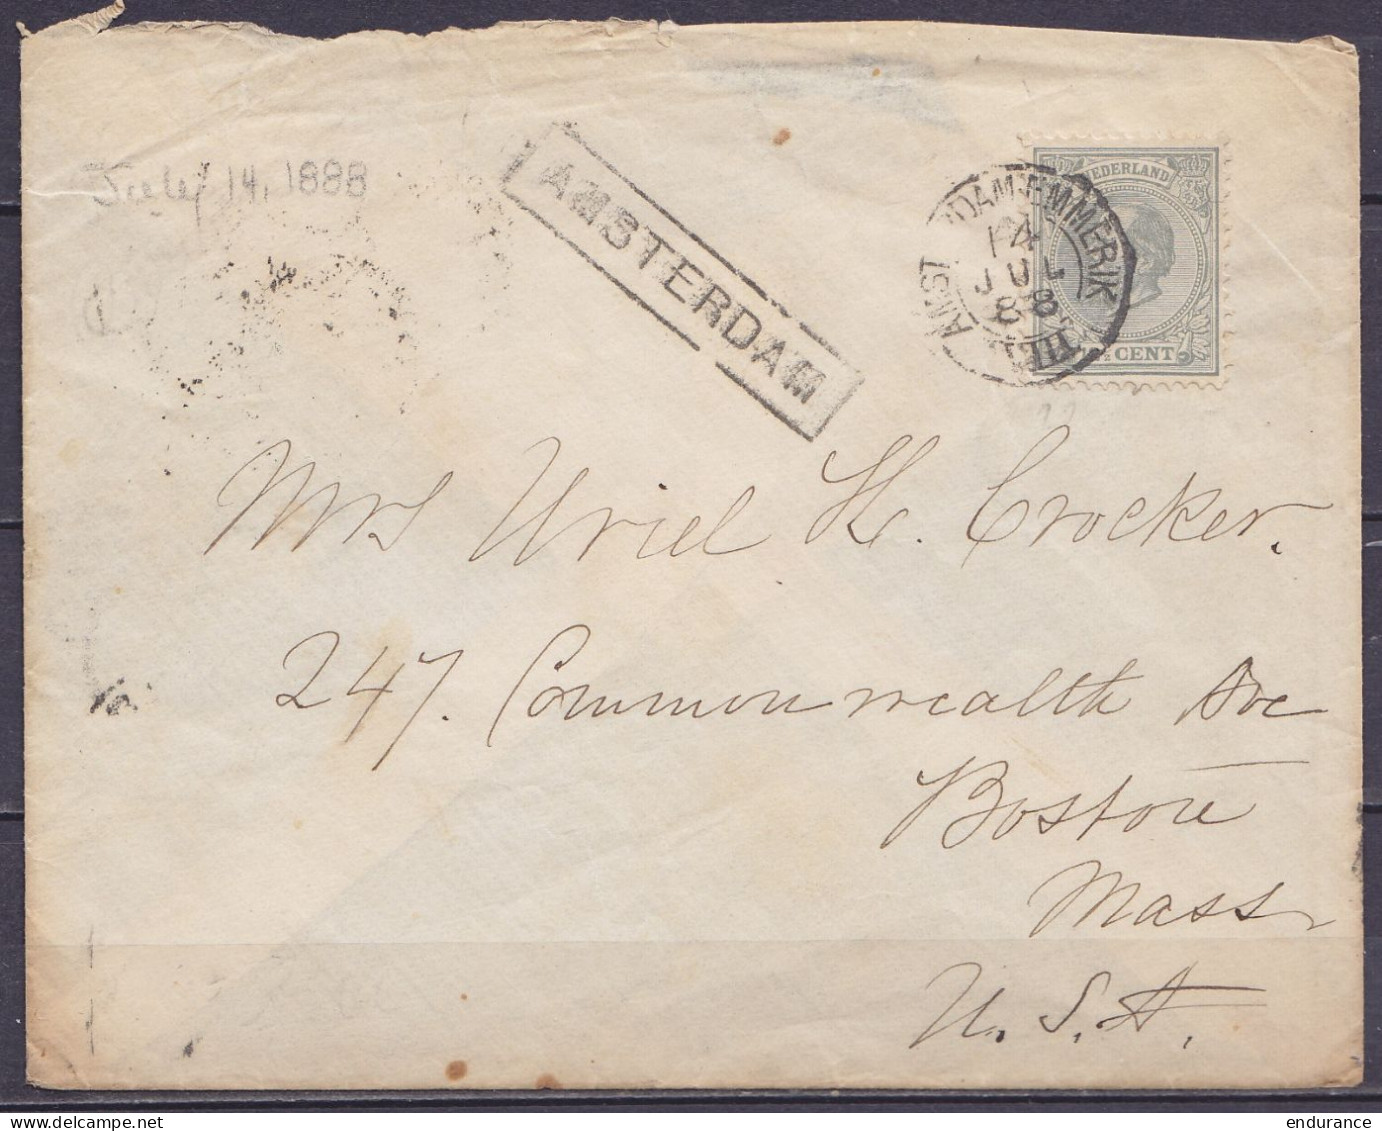 July 14, 1888
AMSTERDAM
NEDERLAND
CENT
AMST DAM-EMMERIK
14
JUL
88
Mrs Uriel H. Crocker.
247. Commonwealth Ave
Boston
Mass
U.S.A.
© delcampe.net
endurance